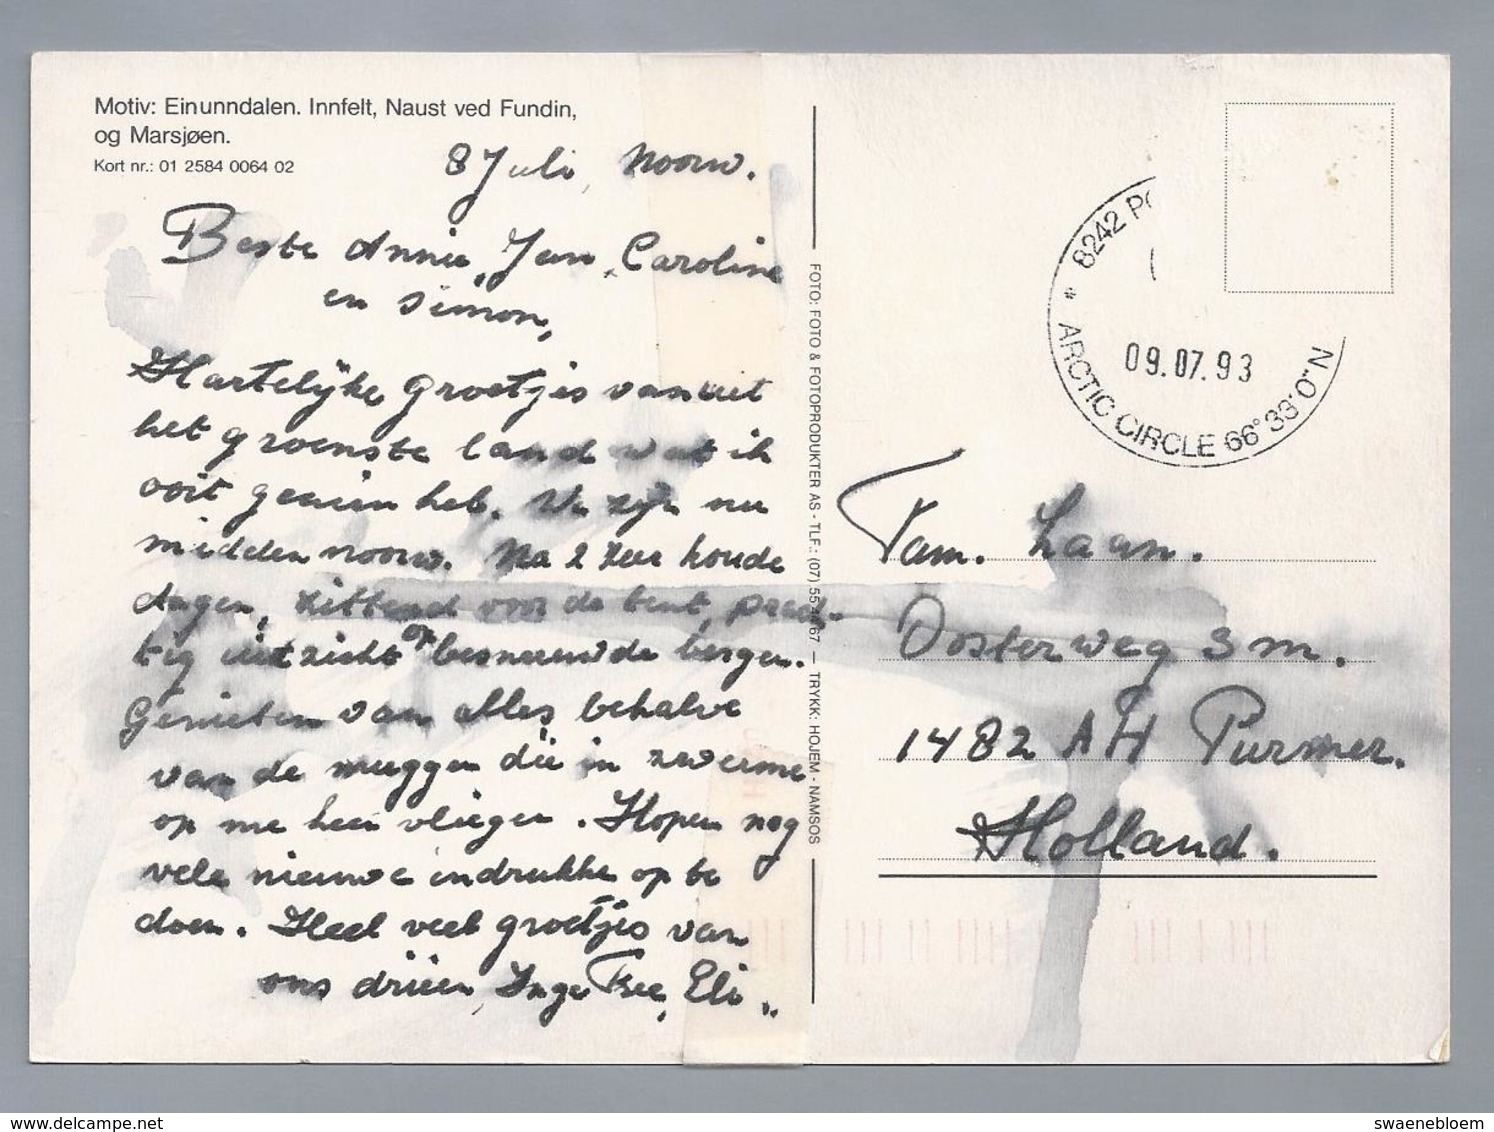 Motiv: Einunndalen. Innfelt, Naust ved Fundin,
og Marsjøen.
Kort nr.: 01 2584 0064 02
8 Juli, Noorw.
Beste Annie, Jan, Caroline
en Simon,
Hartelijke groetjes vanuit
het groenste land wat ik
ooit gezien heb. We zijn nu
midden noorw. Na 2 zeer koude
dagen, zittend voor de tent, prach-
tig uitzicht op besneeuwde bergen.
Genieten van alles behalve
van de muggen die in zwermen
op me heen vliegen. Hopen nog
vele nieuwe indrukke op te
doen. Heel veel groetjes van
ons drieën, Inge Free, Eli
FOTO: FOTO & FOTOPRODUKTER AS - TLF.: (07) 55 67 — TRYKK: HOJEM - NAMSOS
* 8242 PO
09.07.93
ARCTIC CIRCLE 66°33'0"N
Fam. Laan.
Oosterweg 3 m.
1482 AH Purmer.
Holland.
www.delcampe.net
swaenebloem